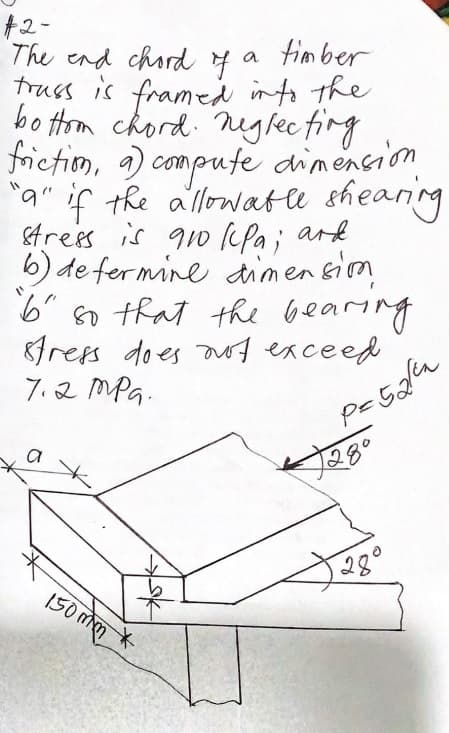 #2-
The end chord of a timber
truss is framed into the
bottom chord. neglecting
friction, a) compute dimension
"a" if the allowable shearing
stress is 910 kPa; and
b) determine dimension
"b" so that the bearing
stress does not exceed
7.2 MPa.
P=52kN
28°
a
28°
b
150mm